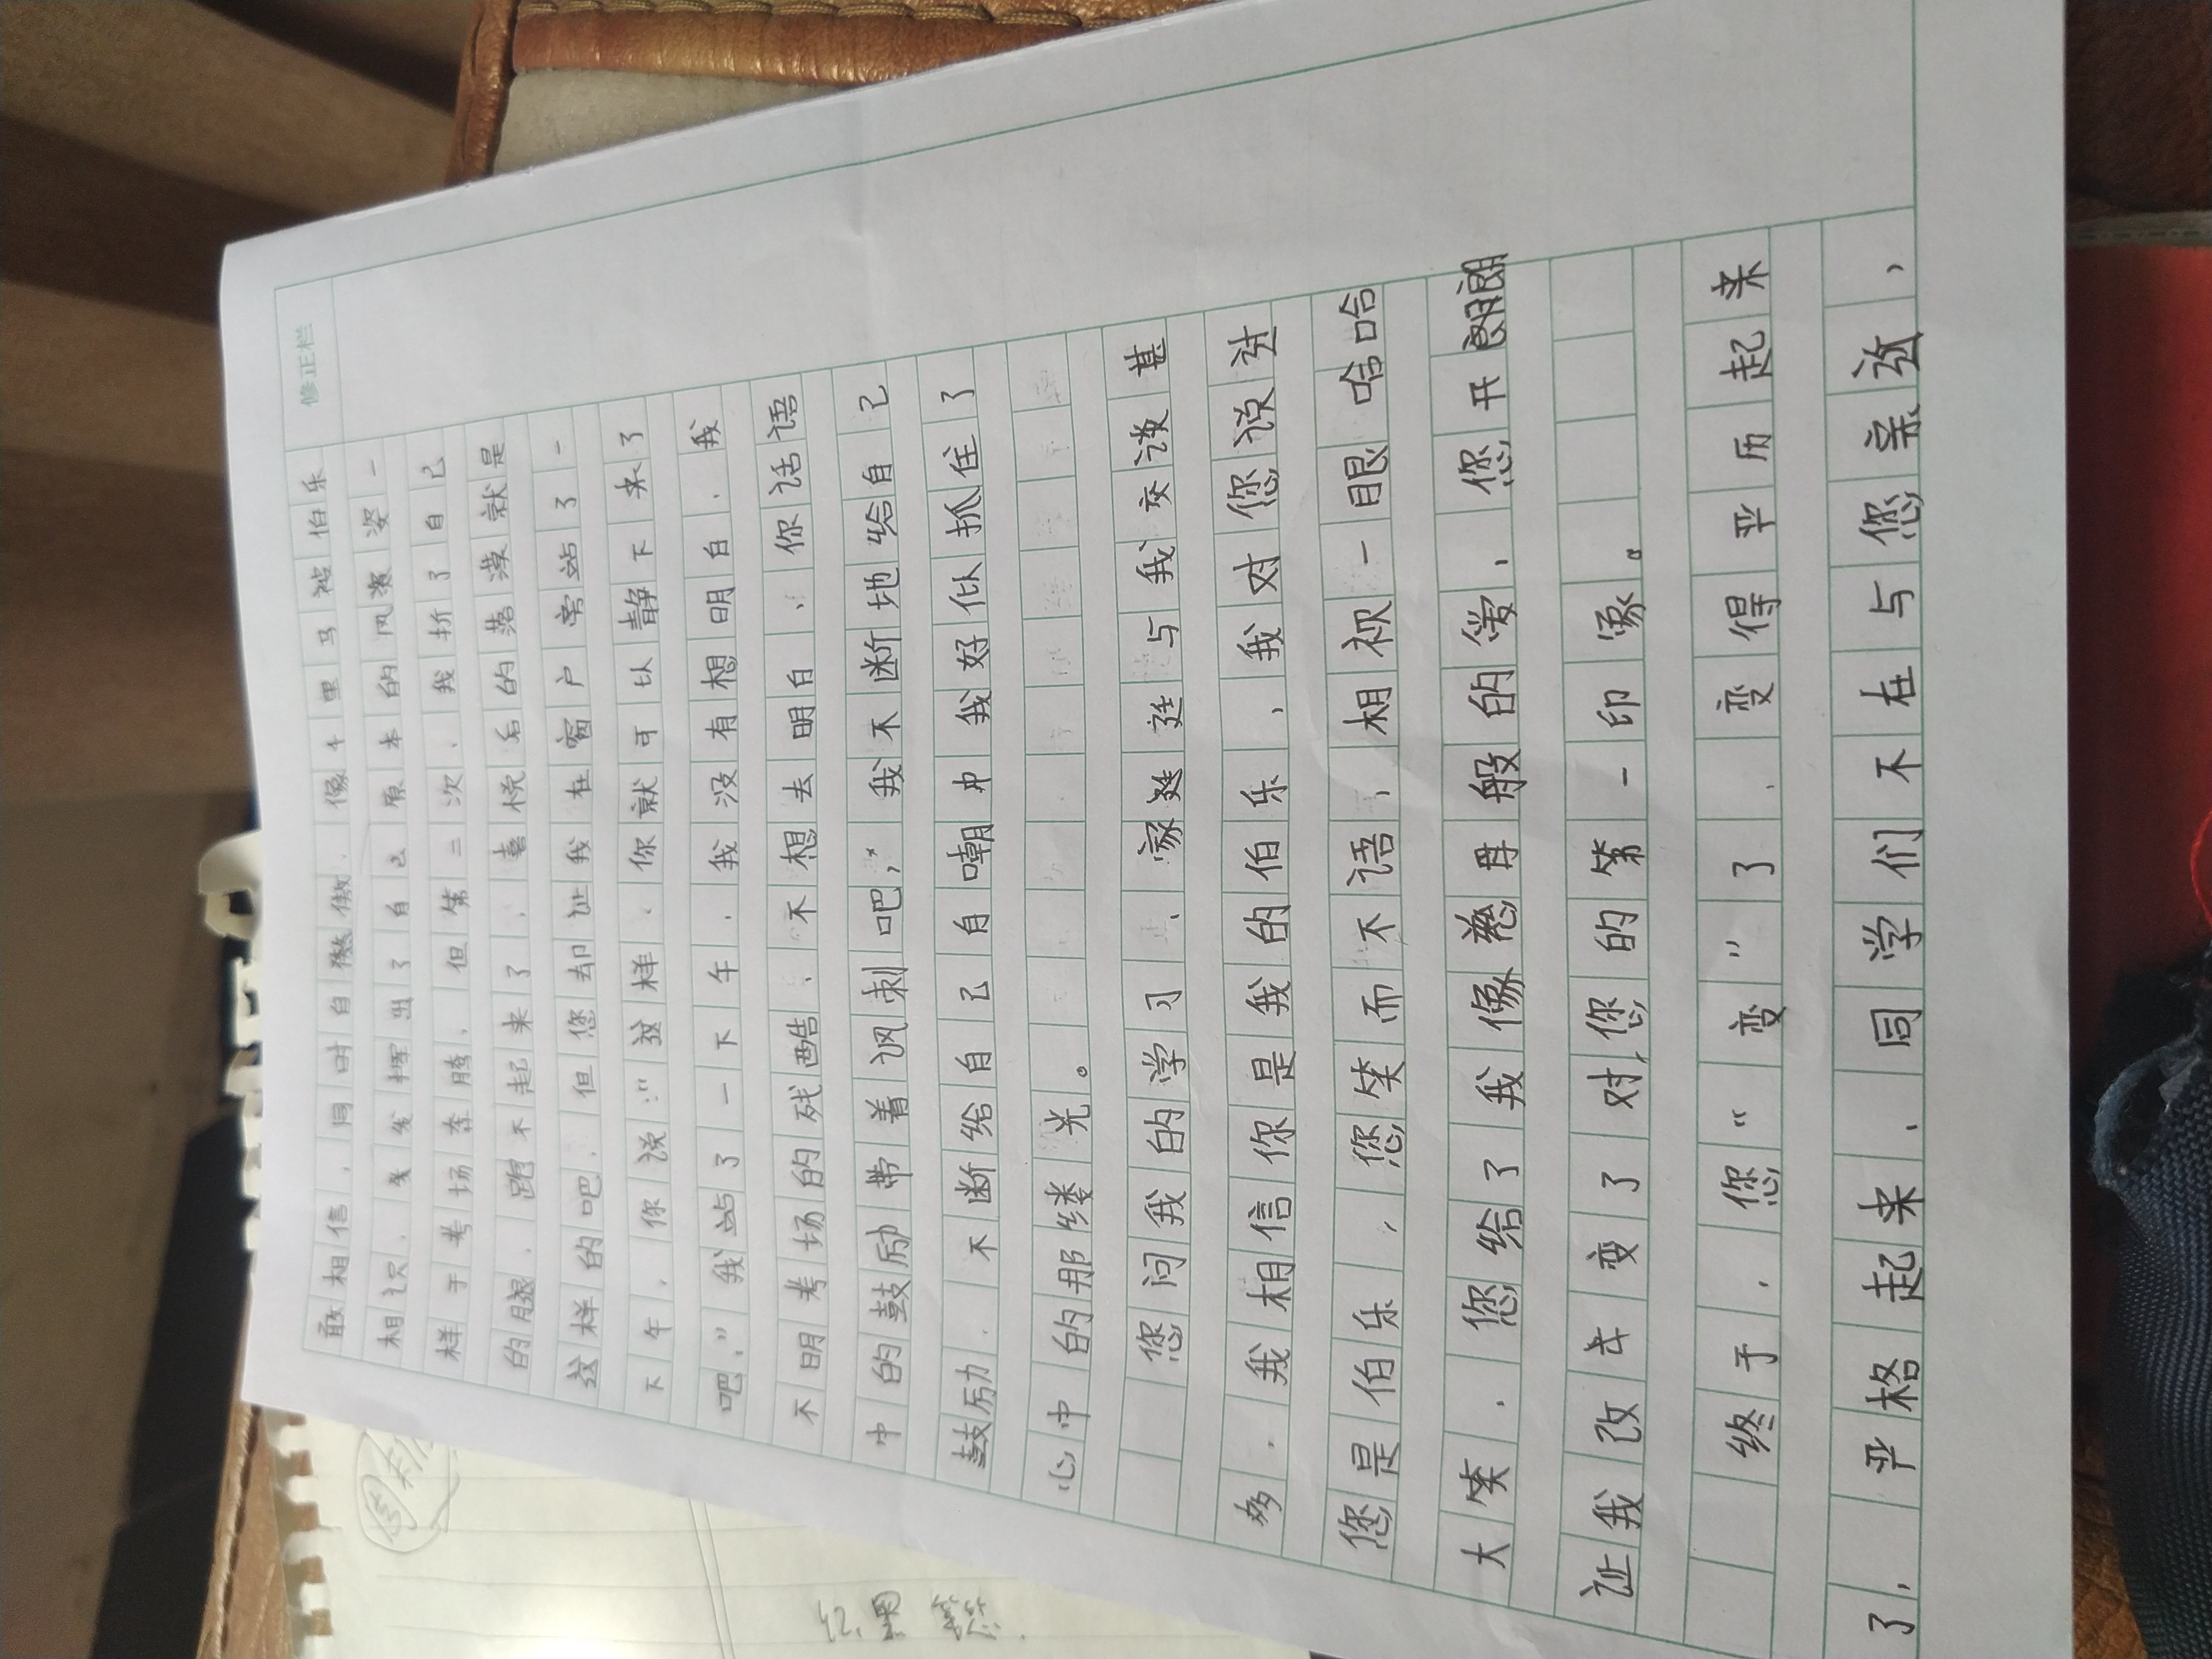 修正栏
敢相信，同时自傲，像千里马被伯乐
相识，发挥出了自己原本的风姿一
样于考场奔腾，但第三次，我折了自己
的腿，跑不起来了，喜悦后的落漠就是
这样的吧，但您却让我在窗户旁站了一
下午，你说：“这样，你就可以静下来了
吧，”我站了一下午，我没有想明白，我
不明考场的残酷，不想去明白，你话语
中的鼓励带着讽刺吧，我不断地给自己
鼓厉力，不断给自己自嘲中我好似抓住了
心中的那缕光。
您问我的学习，家庭与我交谈甚
多，我相信你是我的伯乐，我对您说过
您是伯乐，您笑而不语，相视一眼哈哈
大笑，您给了我像慈母般的爱，您开朗
让我改变了对您的第一印象。
终于，您“变”了，变得严历起来
了，严格起来，同学们不在与您亲近，